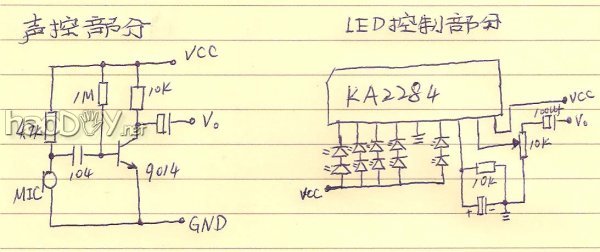 声控部分
LED控制部分
VCC
1M
10K
4.7K
Vo
104
9014
MIC
GND
hadDIY.net
KA2284
VCC
100uf
Vo
10K
10K
VCC
+ -